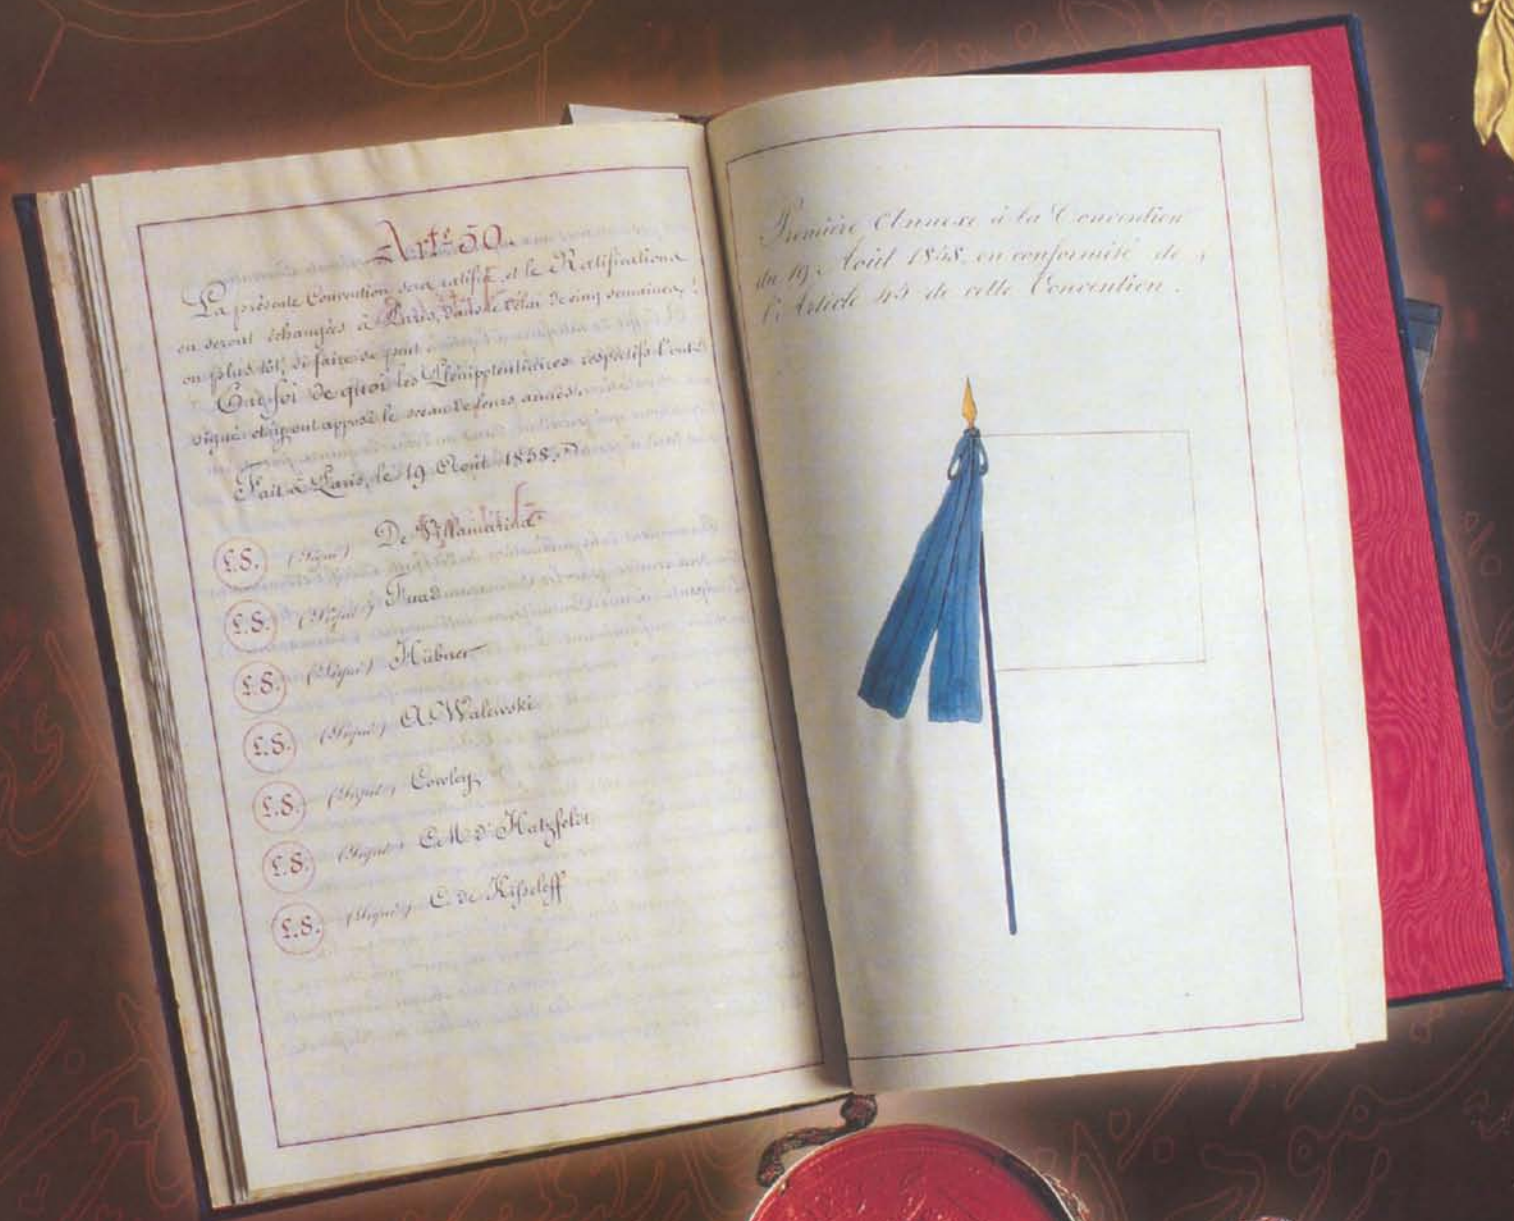 Art.e 50.
La présente Convention sera ratifiée, et le Ratifications
en seront échangées à Paris, dans le délai de cinq semaines,
ou plus tôt, si faire se peut.
En foi de quoi les Plénipotentiaires respectifs l'ont
signée et y ont apposé le sceau de leurs armes.
Fait à Paris, le 19 Août 1858.
L.S. (Signé) De Villamarina
L.S. (Signé) Fuad
L.S. (Signé) Hübner
L.S. (Signé) A. Walewski
L.S. (Signé) Cowley
L.S. (Signé) C.M. d'Hatzfeldt
L.S. (Signé) C. de Kisseleff
Première Annexe à la Convention
du 19 Août 1858, en conformité de
l'Article 45 de cette Convention.